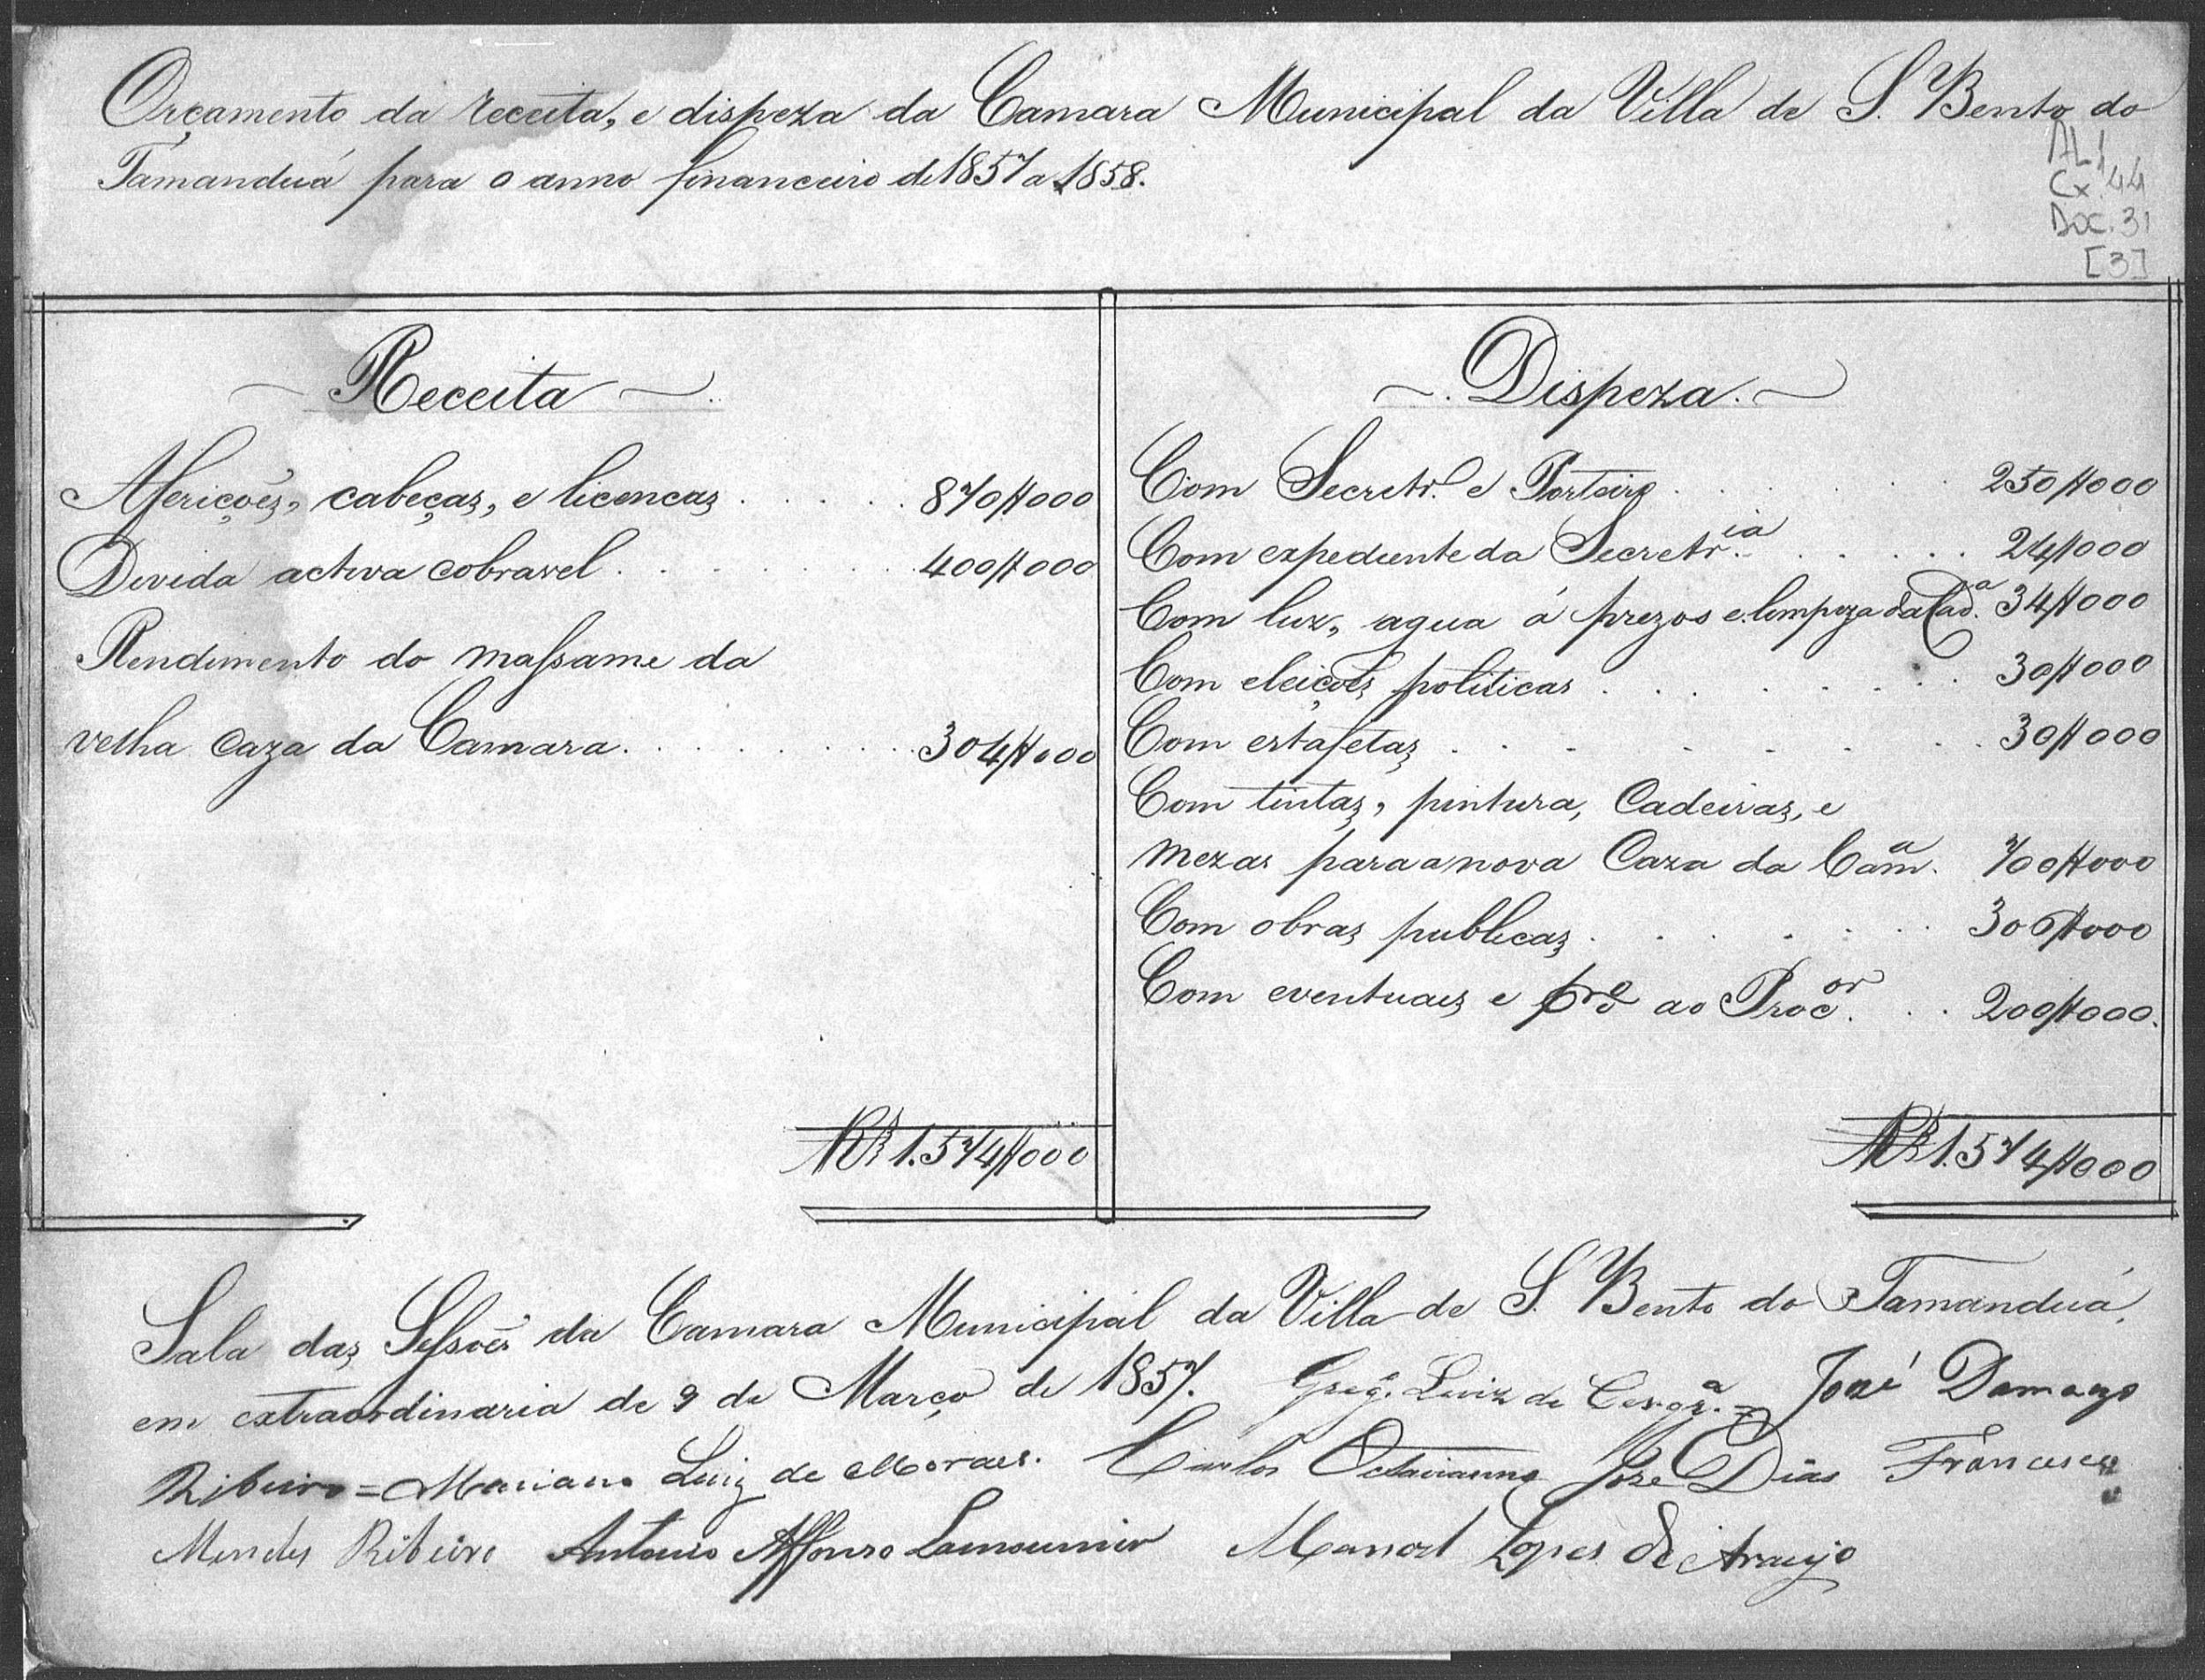 Orçamento da receita, e dispeza da Camara Municipal da Villa de S. Bento do
Tamanduá para o anno financeiro de 1857 a 1858.
AL 1
Cx. 44
Doc. 31
[3]
Receita
Aferições, cabeças, e licencas . . . . 870$000
Devida activa cobravel . . . . . . . 400$000
Rendimento do massame da
velha Caza da Camara . . . . . . . . 304$000
Rs 1.574$000
Dispeza.
Com Secretr.º e Porteiro . . . . . . 250$000
Com expediente da Secretr.ia . . . . . 24$000
Com luz, agua á prezos e limpeza da Cad.a 34$000
Com eleições politicas . . . . . . . 30$000
Com estafetas . . . . . . . . 30$000
Com tintas, pintura, Cadeiras, e
mezas para a nova Caza da Cam.a 700$000
Com obras publicas . . . . . . . 306$000
Com eventuaes e ao Proc.or . . 200$000.
Rs 1.574$000
Sala das Sessões da Camara Municipal da Villa de S. Bento do Tamanduá,
em extraordinaria de 9 de Março de 1857. Greg.º Luiz de José Damazo
Ribeiro = Mariano Luiz de Moraes. Carlos Octavianno José Dias Francisco
Mendes Ribeiro Antonio Affonso Lamounier Manoel Lopes de Araujo